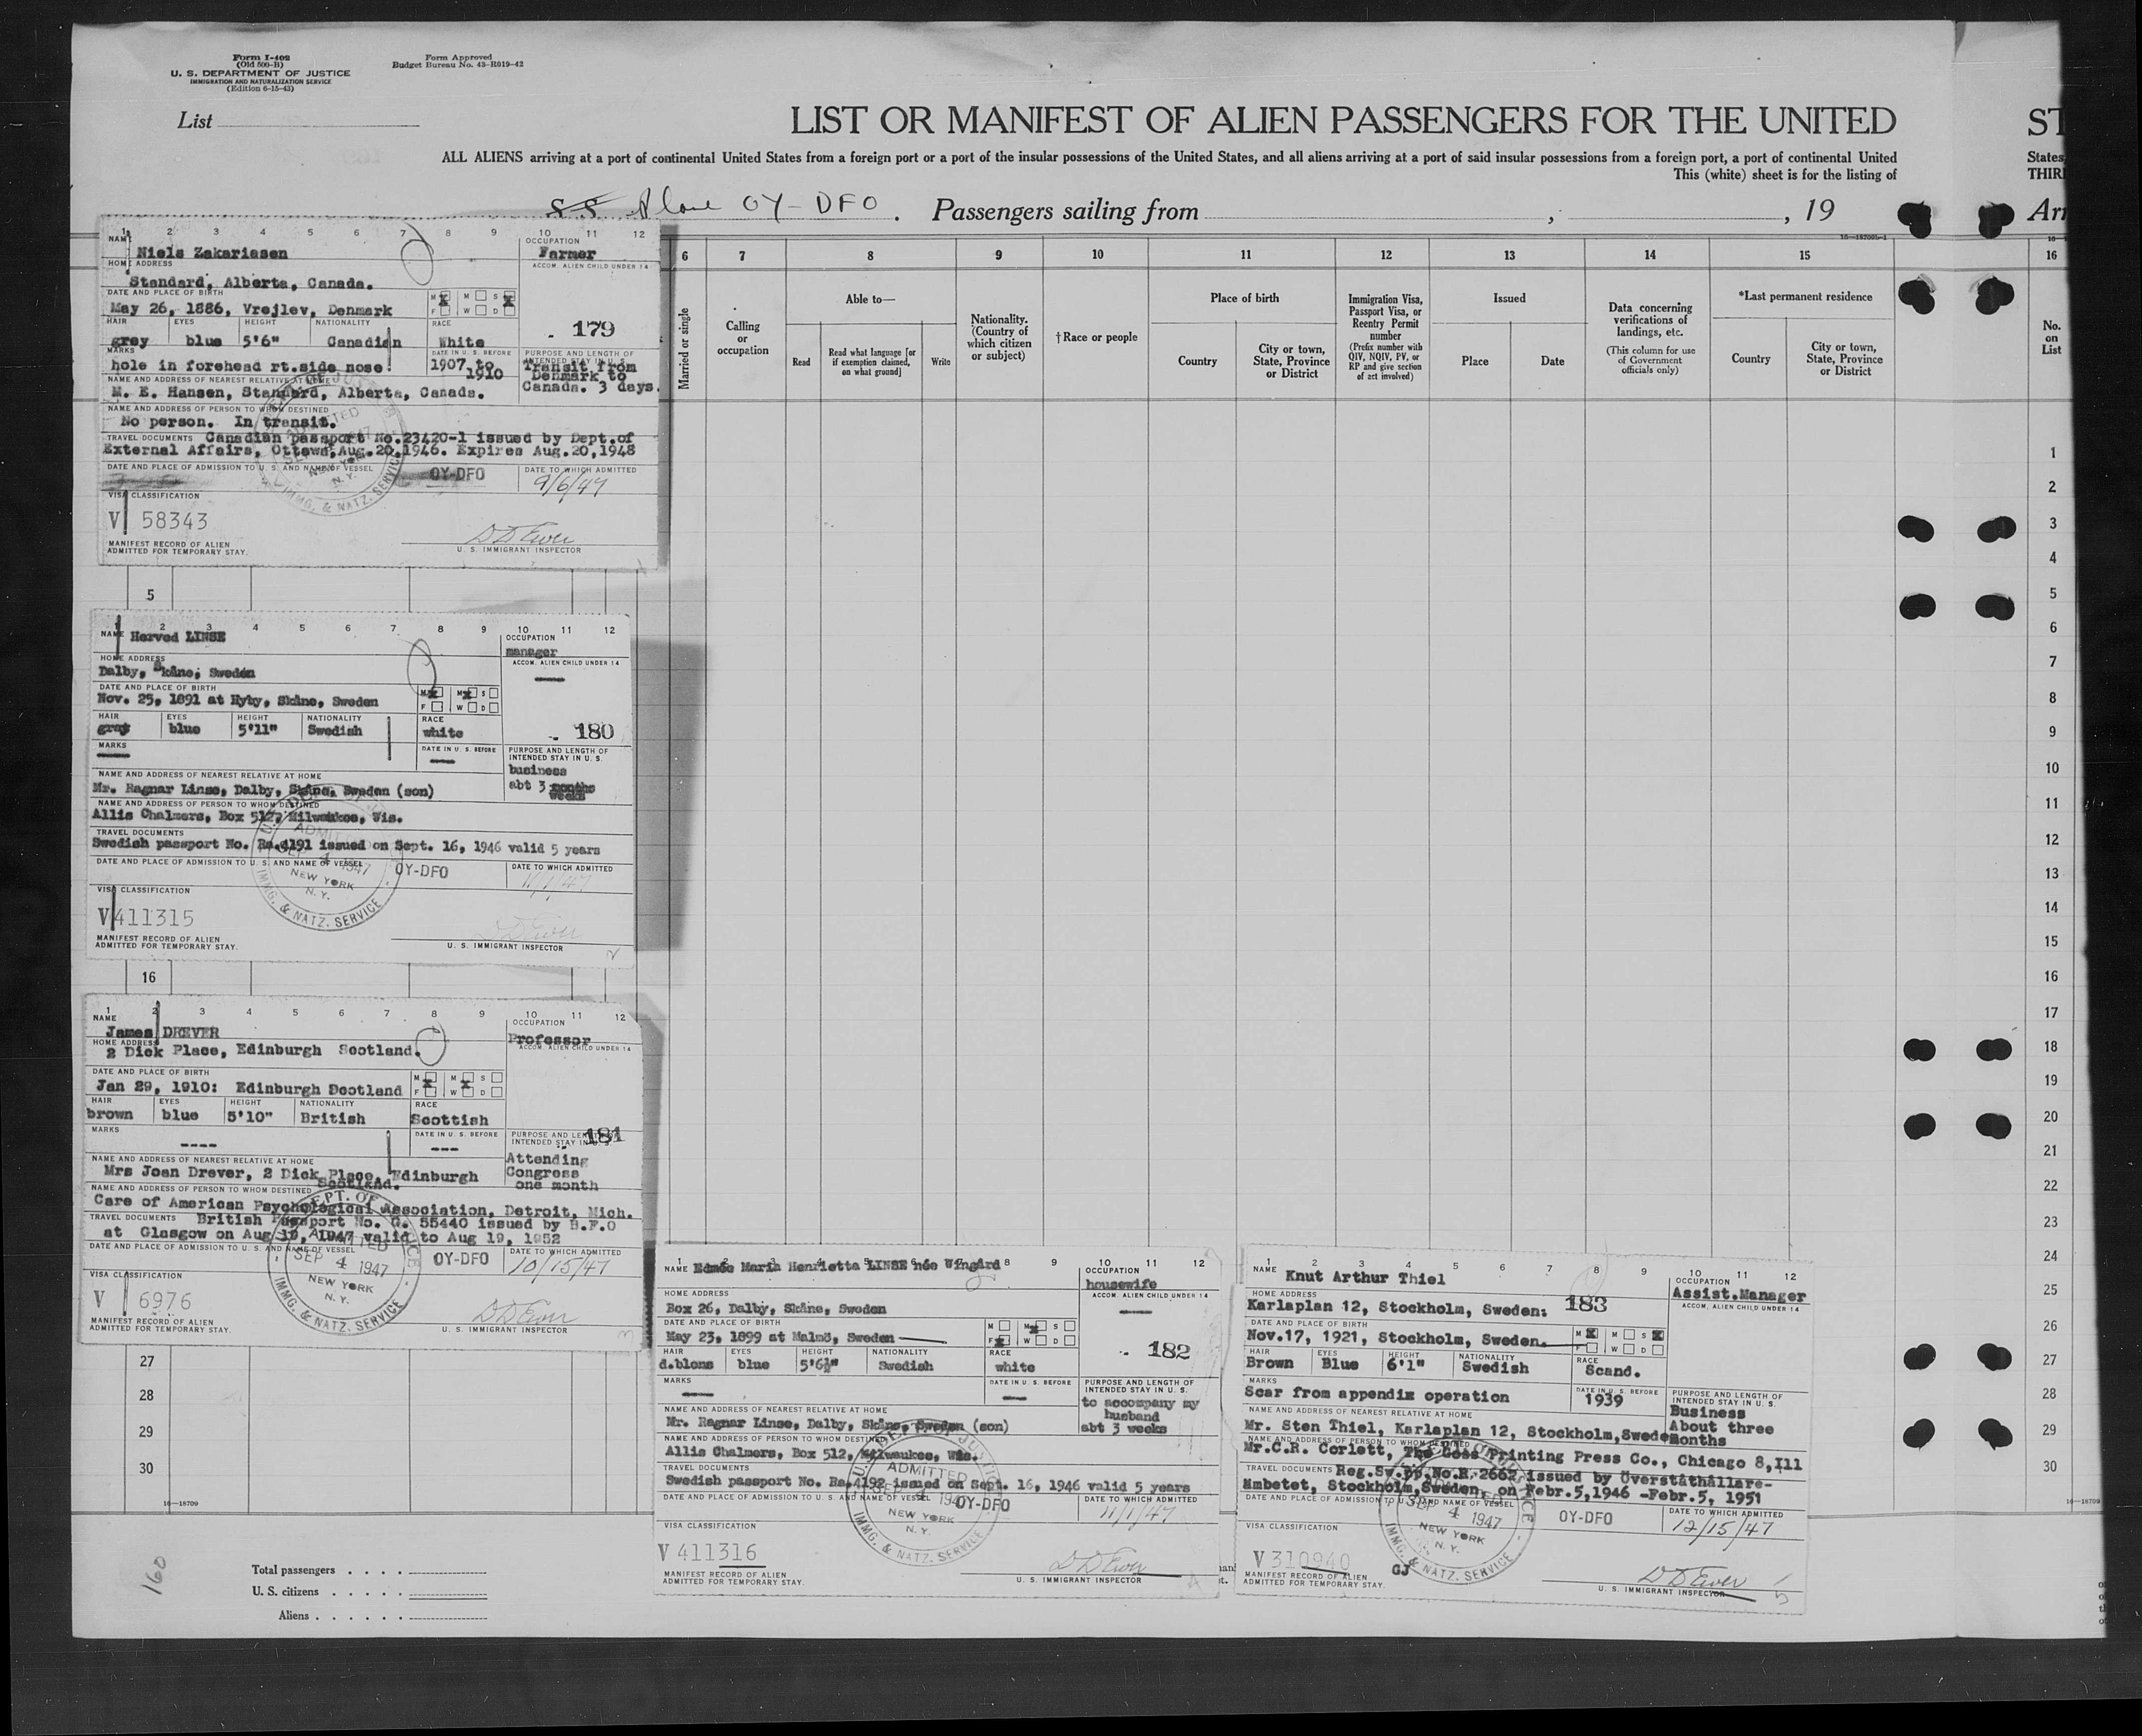 Form I-402
(Old 500-B)
U. S. DEPARTMENT OF JUSTICE
IMMIGRATION AND NATURALIZATION SERVICE
(Edition 6-15-43)
Form Approved
Budget Bureau No. 43-R019-42
List
LIST OR MANIFEST OF ALIEN PASSENGERS FOR THE UNITED
ST
ALL ALIENS arriving at a port of continental United States from a foreign port or a port of the insular possessions of the United States, and all aliens arriving at a port of said insular possessions from a foreign port, a port of continental United
States,
This (white) sheet is for the listing of
THIR
SS Plane OY-DFO . Passengers sailing from , , 19
Arr
16—18709b-1
6 7 8 9 10 11 12 13 14 15 16
Married or single
Calling or occupation
Able to—
Read
Read what language [or if exemption claimed, on what ground]
Write
Nationality. (Country of which citizen or subject)
†Race or people
Place of birth
Country
City or town, State, Province or District
Immigration Visa, Passport Visa, or Reentry Permit number
(Prefix number with QIV, NQIV, PV, or RP and give section of act involved)
Issued
Place
Date
Data concerning verifications of landings, etc.
(This column for use of Government officials only)
*Last permanent residence
Country
City or town, State, Province or District
No. on List
1 2 3 4 5 6 7 8 9 10 11 12
NAME Niels Zakariasen
OCCUPATION Farmer
HOME ADDRESS
ACCOM. ALIEN CHILD UNDER 14
Standard, Alberta, Canada.
DATE AND PLACE OF BIRTH
May 26, 1886, Vrejlev, Denmark
M X M S X
F W D
HAIR EYES HEIGHT NATIONALITY RACE
179
grey blue 5'6" Canadian White
MARKS
DATE IN U. S. BEFORE
PURPOSE AND LENGTH OF INTENDED STAY IN U. S.
hole in forehead rt.side nose.
1907 to 1910
Transit from Denmark to Canada. 3 days.
NAME AND ADDRESS OF NEAREST RELATIVE AT HOME
M. E. Hansen, Standard, Alberta, Canada.
NAME AND ADDRESS OF PERSON TO WHOM DESTINED
No person. In transit.
TRAVEL DOCUMENTS Canadian passport No.23420-1 issued by Dept.of
External Affairs, Ottawa,Aug.20,1946. Expires Aug.20,1948
DATE AND PLACE OF ADMISSION TO U. S. AND NAME OF VESSEL
OY-DFO
DATE TO WHICH ADMITTED
9/6/47
ADMITTED
NEW YORK
N. Y.
IMMG. & NATZ. SERVICE
VISA CLASSIFICATION
V 58343
MANIFEST RECORD OF ALIEN
ADMITTED FOR TEMPORARY STAY.
D D Ewer
U. S. IMMIGRANT INSPECTOR
5
1 2 3 4 5 6 7 8 9 10 11 12
NAME Herved LINSE
OCCUPATION
manager
HOME ADDRESS
ACCOM. ALIEN CHILD UNDER 14
Dalby, Skåne, Sweden
DATE AND PLACE OF BIRTH
Nov. 25, 1891 at Hyby, Skåne, Sweden
M X M X S
F W D
HAIR EYES HEIGHT NATIONALITY RACE
gray blue 5'11" Swedish white
180
MARKS
DATE IN U. S. BEFORE
PURPOSE AND LENGTH OF INTENDED STAY IN U. S.
business
abt 3 months
weeks
NAME AND ADDRESS OF NEAREST RELATIVE AT HOME
Mr. Ragnar Linse, Dalby, Skåne, Sweden (son)
NAME AND ADDRESS OF PERSON TO WHOM DESTINED
Allis Chalmers, Box 512, Milwaukee, Wis.
TRAVEL DOCUMENTS
Swedish passport No. Ra.4191 issued on Sept. 16, 1946 valid 5 years
DATE AND PLACE OF ADMISSION TO U. S. AND NAME OF VESSEL
OY-DFO
DATE TO WHICH ADMITTED
11/1/47
ADMITTED
SEP 4 1947
NEW YORK
N. Y.
IMMG. & NATZ. SERVICE
VISA CLASSIFICATION
V 411315
MANIFEST RECORD OF ALIEN
ADMITTED FOR TEMPORARY STAY.
D D Ewer
U. S. IMMIGRANT INSPECTOR
2
16
1 2 3 4 5 6 7 8 9 10 11 12
NAME
James DREVER
OCCUPATION
Professor
HOME ADDRESS
ACCOM. ALIEN CHILD UNDER 14
2 Dick Place, Edinburgh Scotland.
DATE AND PLACE OF BIRTH
Jan 29, 1910: Edinburgh Scotland
M X M X S
F W D
HAIR EYES HEIGHT NATIONALITY RACE
brown blue 5'10" British Scottish
MARKS
----
DATE IN U. S. BEFORE
---
181
PURPOSE AND LENGTH OF INTENDED STAY IN U. S.
Attending
Congress
one month
NAME AND ADDRESS OF NEAREST RELATIVE AT HOME
Mrs Joan Drever, 2 Dick Place, Edinburgh
Scotland.
NAME AND ADDRESS OF PERSON TO WHOM DESTINED
Care of American Psychological Association, Detroit, Mich.
TRAVEL DOCUMENTS British Passport No. G. 55440 issued by B.F.O
at Glasgow on Aug 19, 1947 valid to Aug 19, 1952
DATE AND PLACE OF ADMISSION TO U. S. AND NAME OF VESSEL
OY-DFO
DATE TO WHICH ADMITTED
10/15/47
ADMITTED
SEP 4 1947
NEW YORK
N. Y.
IMMG. & NATZ. SERVICE
VISA CLASSIFICATION
V 6976
MANIFEST RECORD OF ALIEN
ADMITTED FOR TEMPORARY STAY.
D D Ewer
U. S. IMMIGRANT INSPECTOR
3
27
28
29
30
16—18709
1 2 3 4 5 6 7 8 9 10 11 12
NAME Edmée Maria Henrietta LINSE née Wingård
OCCUPATION
housewife
HOME ADDRESS
ACCOM. ALIEN CHILD UNDER 14
Box 26, Dalby, Skåne, Sweden
DATE AND PLACE OF BIRTH
May 23, 1899 at Malmö, Sweden
M M X S
F X W D
HAIR EYES HEIGHT NATIONALITY RACE
d.blons blue 5'6½" Swedish white
182
MARKS
DATE IN U. S. BEFORE
PURPOSE AND LENGTH OF INTENDED STAY IN U. S.
to accompany my
husband
abt 3 weeks
NAME AND ADDRESS OF NEAREST RELATIVE AT HOME
Mr. Ragnar Linse, Dalby, Skåne, Sweden (son)
NAME AND ADDRESS OF PERSON TO WHOM DESTINED
Allis Chalmers, Box 512, Milwaukee, Wis.
TRAVEL DOCUMENTS
Swedish passport No. Ra.4192 issued on Sept. 16, 1946 valid 5 years
DATE AND PLACE OF ADMISSION TO U. S. AND NAME OF VESSEL
OY-DFO
DATE TO WHICH ADMITTED
11/1/47
ADMITTED
NEW YORK
N. Y.
IMMG. & NATZ. SERVICE
VISA CLASSIFICATION
V 411316
MANIFEST RECORD OF ALIEN
ADMITTED FOR TEMPORARY STAY.
D D Ewer
U. S. IMMIGRANT INSPECTOR
1 2 3 4 5 6 7 8 9 10 11 12
NAME Knut Arthur Thiel
OCCUPATION
Assist.Manager
HOME ADDRESS
ACCOM. ALIEN CHILD UNDER 14
Karlaplan 12, Stockholm, Sweden:
183
DATE AND PLACE OF BIRTH
Nov.17, 1921, Stockholm, Sweden.
M X M S X
F W D
HAIR EYES HEIGHT NATIONALITY RACE
Brown Blue 6'1" Swedish Scand.
MARKS
Scar from appendix operation
DATE IN U. S. BEFORE
1939
PURPOSE AND LENGTH OF INTENDED STAY IN U. S.
Business
About three
months
NAME AND ADDRESS OF NEAREST RELATIVE AT HOME
Mr. Sten Thiel, Karlaplan 12, Stockholm,Sweden
NAME AND ADDRESS OF PERSON TO WHOM DESTINED
Mr.C.R. Corlett, The Goss Printing Press Co., Chicago 8,Ill
TRAVEL DOCUMENTS Reg.Sw.pp.No.R.2662 issued by Överståthållare-
Ämbetet, Stockholm,Sweden, on Febr.5,1946 -Febr.5, 1951
DATE AND PLACE OF ADMISSION TO U. S. AND NAME OF VESSEL
OY-DFO
DATE TO WHICH ADMITTED
12/15/47
SEP 4 1947
NEW YORK
N. Y.
IMMG. & NATZ. SERVICE
VISA CLASSIFICATION
V 310940
GJ
MANIFEST RECORD OF ALIEN
ADMITTED FOR TEMPORARY STAY.
D D Ewer
U. S. IMMIGRANT INSPECTOR
5
1
2
3
4
5
6
7
8
9
10
11
12
13
14
15
16
17
18
19
20
21
22
23
24
25
26
27
28
29
30
16—18709
160
Total passengers . . . .
U. S. citizens . . . . .
Aliens . . . . . .